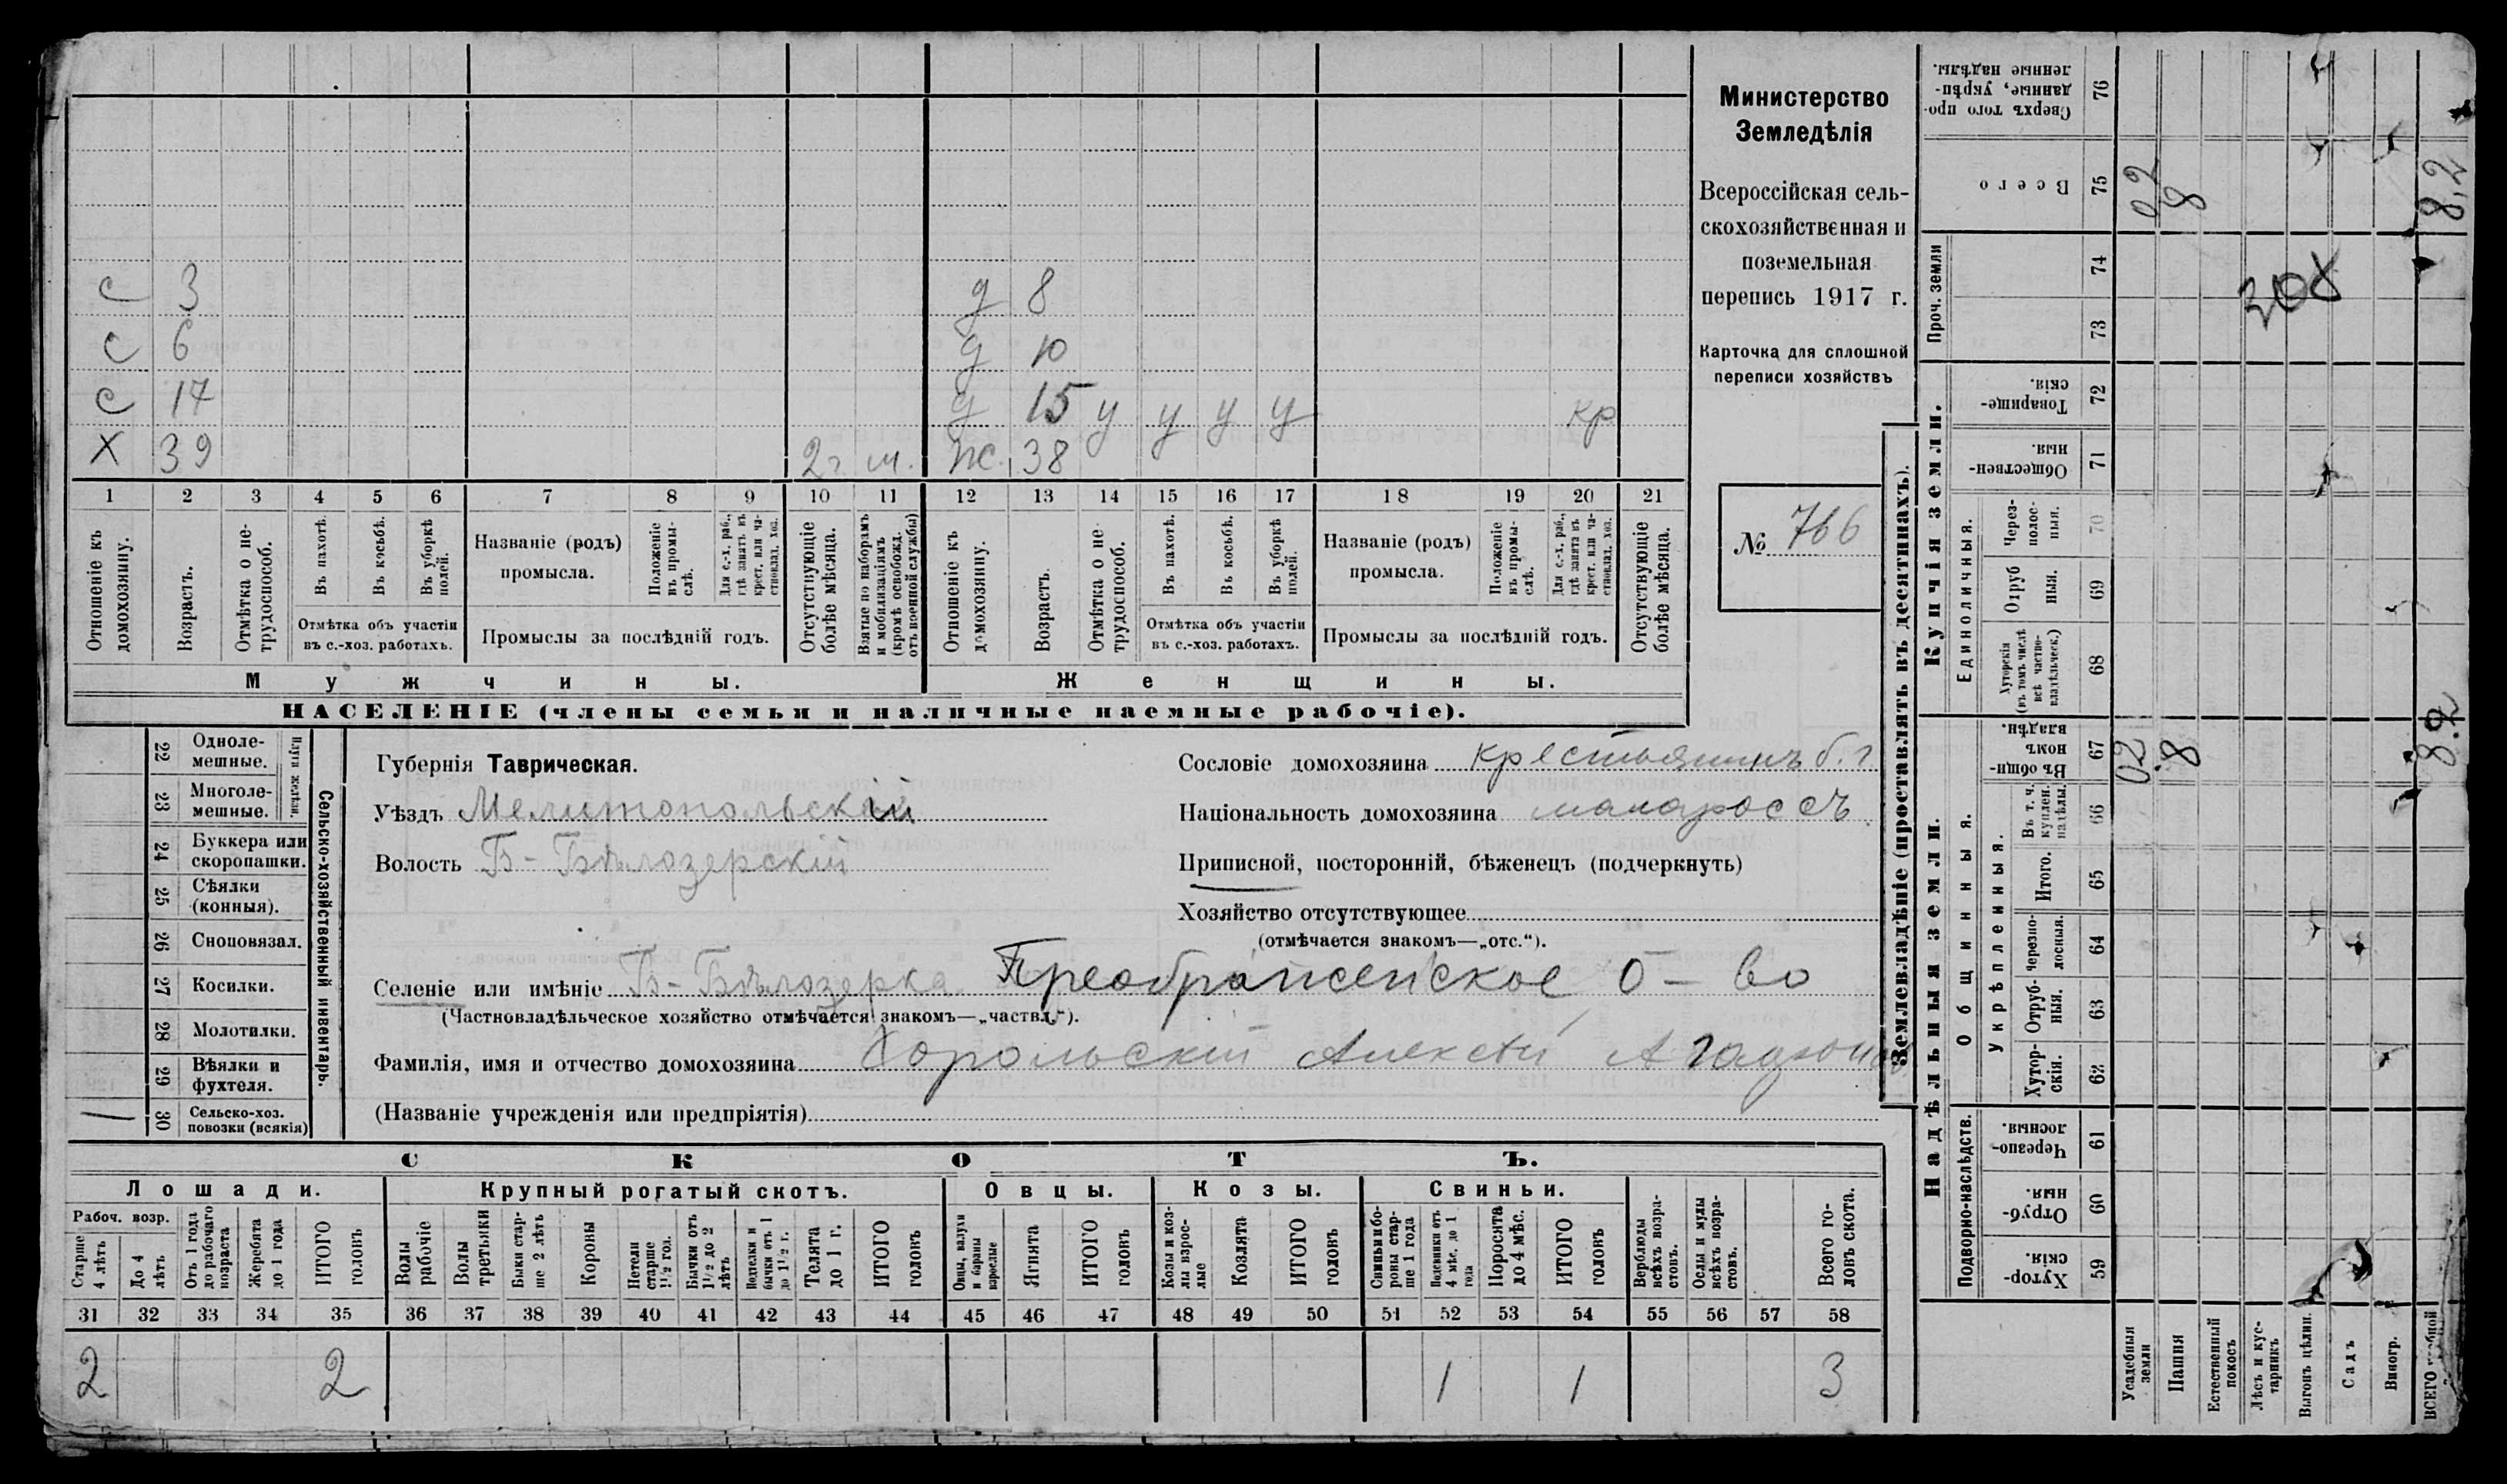 с 3 д 8
с 6 д 10
с 14 д 15 у у у у кр
Х 39 2 г м. ж. 38
1 2 3 4 5 6 7 8 9 10 11 12 13 14 15 16 17 18 19 20 21
Отношеніе къ домохозяину.
Возрастъ.
Отмѣтка о нетрудоспособ.
Въ пахотѣ.
Въ косьбѣ.
Въ уборкѣ полей.
Отмѣтка объ участіи въ с.-хоз. работахъ.
Названіе (родъ) промысла.
Положеніе въ промыслѣ.
Для с.-х. раб., гдѣ занятъ въ крест. или частновлад. хоз.
Промыслы за послѣдній годъ.
Отсутствующіе болѣе мѣсяца.
Взятые по наборамъ и мобилизаціямъ (кромѣ освобожд. отъ военной службы)
Отношеніе къ домохозяину.
Возрастъ.
Отмѣтка о нетрудоспособ.
Въ пахотѣ.
Въ косьбѣ.
Въ уборкѣ полей.
Отмѣтка объ участіи въ с.-хоз. работахъ.
Названіе (родъ) промысла.
Положеніе въ промыслѣ.
Для с.-х. раб., гдѣ занята въ крест. или частновлад. хоз.
Промыслы за послѣдній годъ.
Отсутствующіе болѣе мѣсяца.
Мужчины. Женщины.
НАСЕЛЕНІЕ (члены семьи и наличные наемные рабочіе).
Министерство
Земледѣлія
Всероссійская сель-
скохозяйственная и
поземельная
перепись 1917 г.
Карточка для сплошной
переписи хозяйствъ
№ 766
22 Одноле-мешные.
23 Многоле-мешные.
Плуги желѣзн.
24 Буккера или скоропашки.
25 Сѣялки (конныя).
26 Сноповязал.
27 Косилки.
28 Молотилки.
29 Вѣялки и фухтеля.
30 Сельско-хоз. повозки (всякія) 1
Сельско-хозяйственный инвентарь.
Губернія Таврическая.
Уѣздъ Мелитопольскій
Волость Б-Бѣлозерскій
Сословіе домохозяина крестьянинъ б. г
Національность домохозяина малороссъ
Приписной, посторонній, бѣженецъ (подчеркнуть)
Хозяйство отсутствующее
(отмѣчается знакомъ—„отс.“).
Селеніе или имѣніе Б-Бѣлозерка Преображенское о-во
(Частновладѣльческое хозяйство отмѣчается знакомъ—„частвл.“).
Фамилія, имя и отчество домохозяина Хорольскій Алексѣй
(Названіе учрежденія или предпріятія)
СКОТЪ.
Лошади. Крупный рогатый скотъ. Овцы. Козы. Свиньи.
Рабоч. возр.
Старше 4 лѣтъ
До 4 лѣтъ
Отъ 1 года до рабочаго возраста
Жеребята до 1 года
ИТОГО головъ
Волы рабочіе
Волы третьяки
Быки старше 2 лѣтъ
Коровы
Нетели старше 1½ год.
Бычки отъ 1½ до 2 лѣтъ
Подтелки и бычки отъ 1 до 1½ г.
Телята до 1 г.
ИТОГО головъ
Овцы, валухи и бараны взрослые
Ягнята
ИТОГО головъ
Козы и козлы взрослые
Козлята
ИТОГО головъ
Свиньи и боровы старше 1 года
Подсвинки отъ 4 мѣс. до 1 года
Поросята до 4 мѣс.
ИТОГО головъ
Верблюды всѣхъ возрастовъ.
Ослы и мулы всѣхъ возрастовъ.
Всего головъ скота.
31 32 33 34 35 36 37 38 39 40 41 42 43 44 45 46 47 48 49 50 51 52 53 54 55 56 57 58
2 2 1 1 3
Землевладѣніе (проставлять въ десятинахъ).
Купчія земли.
Надѣльныя земли.
Сверхъ того проданные, укрѣпленные надѣлы. 76
Всего 75 02 8 8,2
Проч. земли 74 73
308
Товарищескія. 72
Общественныя. 71
Единоличныя.
Черезполосныя. 70
Отрубныя. 69
Хуторскія (въ томъ числѣ всѣ частновладѣльческ.) 68
Общинныя.
Въ общинномъ владѣн. 67 02 8 8.2
Укрѣпленныя.
Въ т. ч. куплен. надѣлы. 66
Итого. 65
Черезполосныя. 64
Отрубныя. 63
Хуторскія. 62
Подворно-наслѣдств.
Черезполосныя. 61
Отрубныя. 60
Хуторскія. 59
Усадебныя земли
Пашня
Естественный покосъ
Лѣсъ и кустарникъ
Выгонъ цѣлин.
Садъ
Виногр.
ВСЕГО